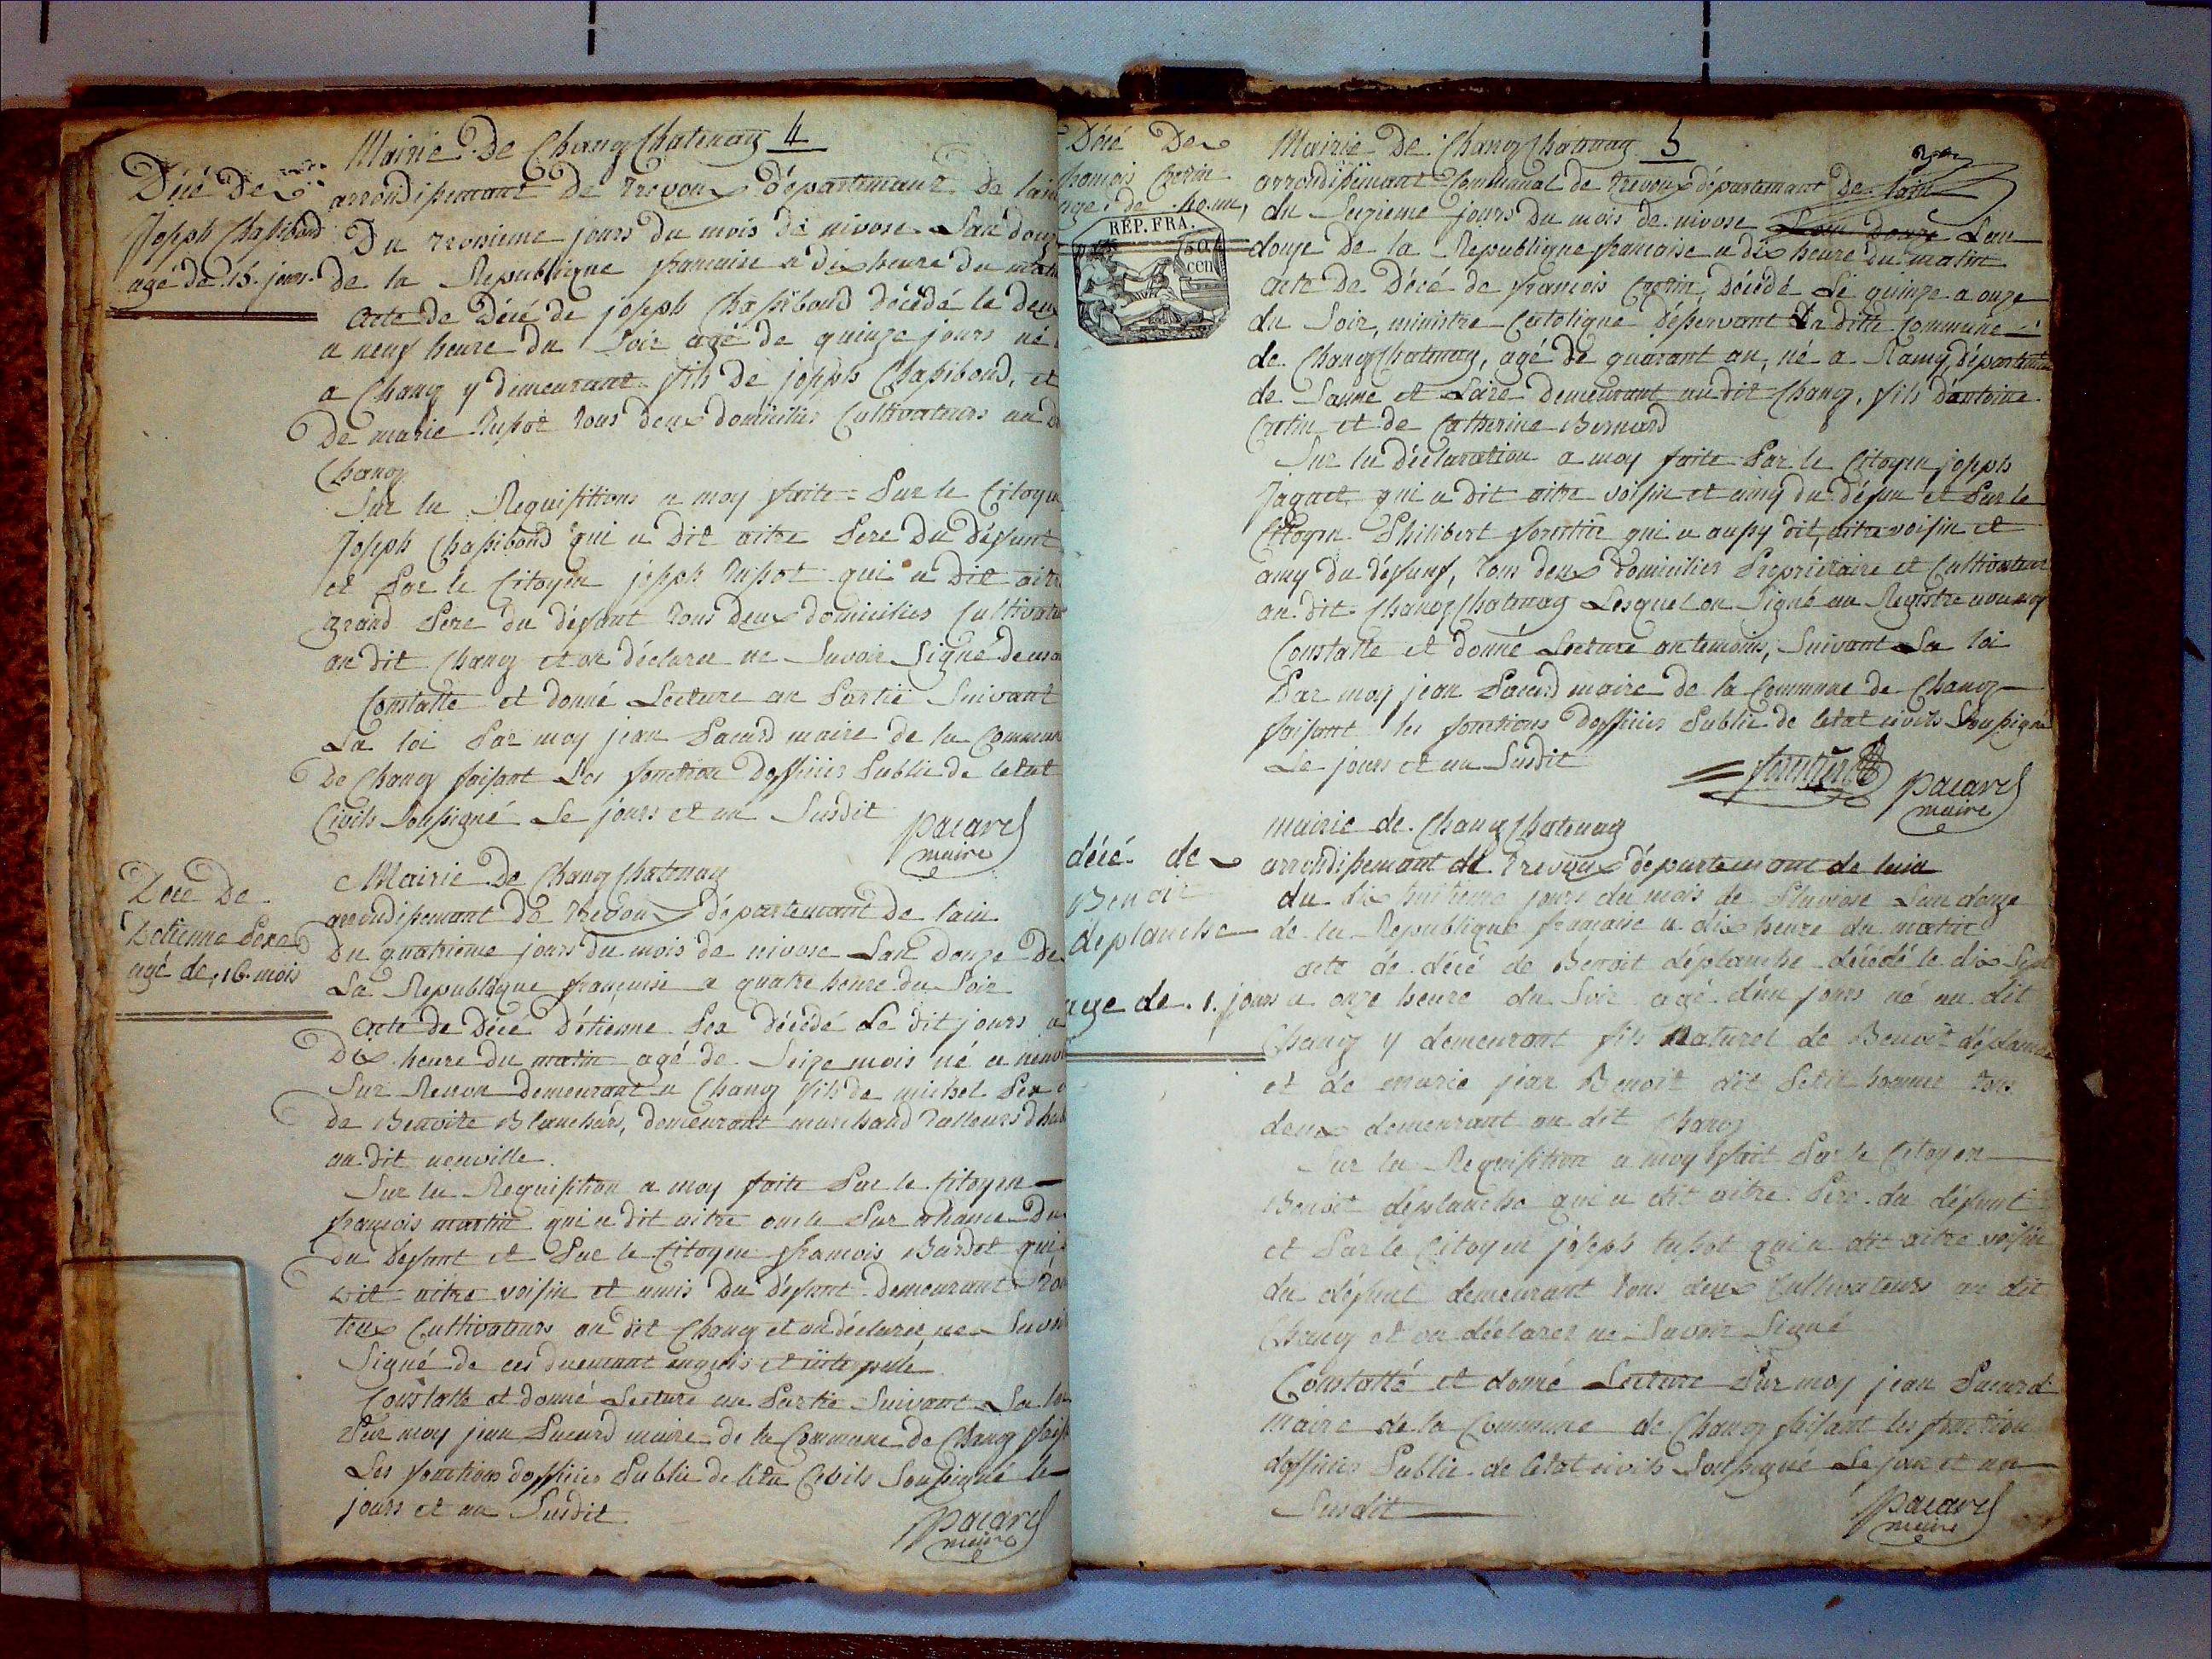 Mairie De Chanoz Chatenay 4
Décé De
Joseph Chassiboud
agé de 15. jour.
arrondissemant De Trevoux département De lain
Du troisieme jours du mois de nivose Lan douze
de la Republique francaise a dix heure du matin
acte de Décé de joseph Chassiboud décédé le deux
a neuf heure du Soir agé de quinze jours né
a Chanoz y demeurant fils de joseph Chassiboud, et
De marie tissot tous deux domicilies Cultivateurs au dit
Chanoz
Sur la Requisitions a moy faite Par le Citoyen
Joseph Chassiboud qui a Dit aitre Pere Du Défunt
et Par le Citoyen joseph tissot qui a Dit aitre
grand Pere du défunt tous deux domicilies Cultivateurs
au dit Chanoz et on déclarer ne Savoir Signé
Constatte et donné Lecture au Partie Suivant
La loi Par moy jean Pacard maire de la Commune
De Chanoz faisant Les fonction Dofficier Public de letat
Civils Soussigné Le jours et an Susdit
pacard
maire
Décé De
Detienne Pex
agé de, 16. mois
Mairie De Chanoz Chatenay
arrondissemant De Trevoux département De lain
Du quatrieme jours du mois de nivose Lan Douze De
La Republique françaisi a quatre heure du Soir
acte De Décé détienne Pex décédé Le dit jours a
Dix heure du matin agé de Seize mois né a neuville
Sur Renon demeurant a Chanoz fils de michel Pex et
De Benoite Blanchard, demeurant marchand tailleurs
au dit neuville.
Sur la Requisition a moy faite Par le Citoyen
françois martin qui a dit aitre oncle Du
du Défunt et Par le Citoyen francois Burdet qui a
Dit aitre voisin et amis Du défunt Demeurant tous
deux Cultivateurs au dit Chanoz et on déclarer ne Savoir
Signé de ces duemant enquis et interpelé
Constatte et donné Lecture au Partie Suivant La loi
Par moy jean Pacard maire de la Commune de Chanoz faisant
Les fonctions dofficier Public de letat Civils Soussigné le
jours et an Susdit
pacard
maire
Décé De
francois Crotin
age de 40. an,
REP. FRA.
50
cen
Mairie De Chanoz Chatenay 5
arrondissemant Communal de Trevoux département De lain
du Seizieme jours Du mois de nivose Lan douze Lan
douze De la Republique francaise a dix heure du matin
acte De Décé de francois Crotin, Décédé Le quinze a onze
du Soir, ministre Catolique désservant La ditte Commune
de Chanoz Chatenay, agé de quarant an, né a Ramy, département
de Sanne et Loire demeurant au dit Chanoz, fils dantoine
Crotin et de Catherine Bernard
Sur la déclaration a moy faite Par le Citoyen joseph
Jaquet qui a dit aitre voisin et amy du défun et Par le
Citoyen Philibert forestier qui a aussy dit, aitre voisin et
amy du défunf, tous deux domicilies Proprietaire et Cultivateur
au dit Chanoz Chatenay Lesquel on Signé au Registre
Constatte et donné Lecture au temoins, Suivant La loi
Par moy jean Pacard maire de la Commune de Chanoz
faisant les fonctions Dofficier Public de letat civils Soussigné
Le jours et an Susdit
forestier
pacard
maire
décé de
Benoit
déplanche
age de. 1. jours
mairie de Chanoz Chatenay
arrondissemant de Trevoux département de lain
du dix huitieme jours du mois de Pluviose Lan douze
de la Republique francaise a dix heure du matin
acte de décé de Benoit déplanche décédé le dix Sept
a onze heure du Soir agé d'un jours né au dit
Chanoz y demeurant fils Naturel de Benoit déplanche
et de marie jean Benoit dit Petit homme tous
deux demeurant au dit Chanoz
Sur la Requisition a moy fait Par le Citoyen
Benoit déplanche qui a dit aitre Pere du défunt
et Par le Citoyen joseph tissot qui a dit aitre voisin
du défunt demeurant tous deux Cultivateurs au dit
Chanoz et on déclarer ne Savoir Signé
Constatté et donné Lecture Par moy jean Pacard
maire de la Commune de Chanoz faisant les fonction
dofficier Public de letat civils Soussigné Le jour et an
Susdit
pacard
maire